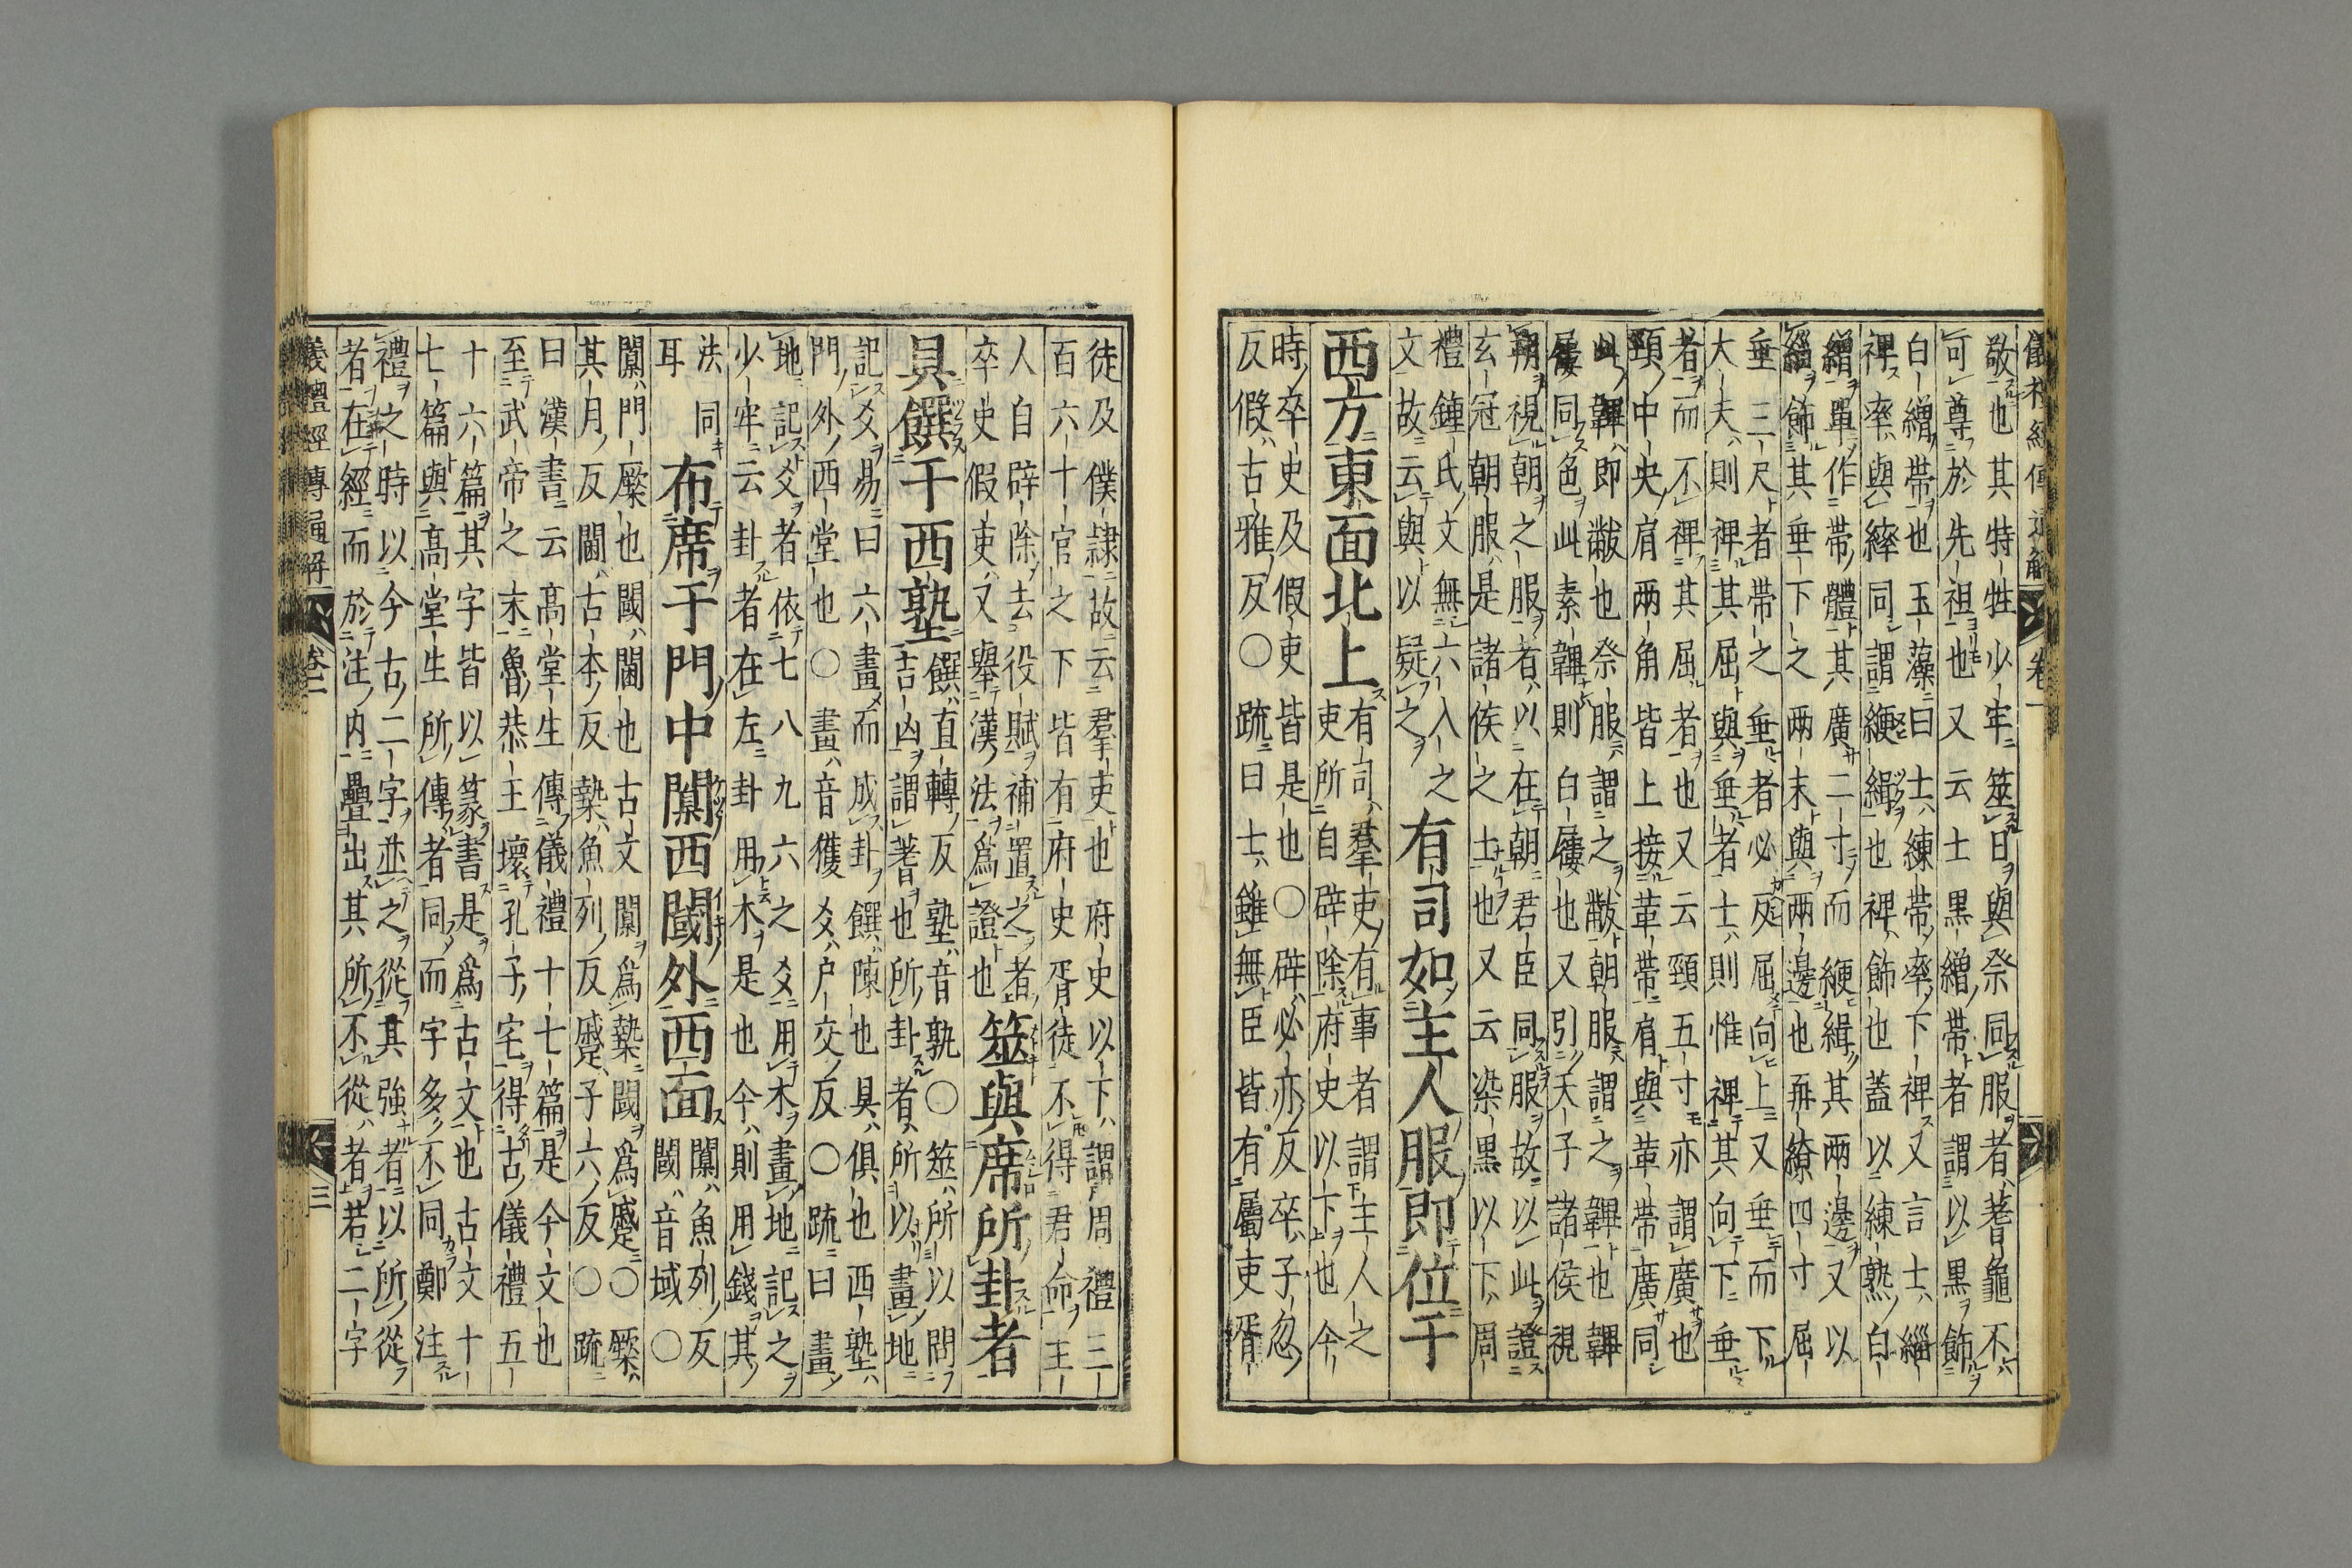 儀禮經傳通解 卷一
敬也其特牲少牢筮日與祭同服者蓍龜不
可尊於先祖也又云士黑繒帶者謂以黑飾
白繒帶也玉藻曰士練帶率下裨又言士緇
裨率與繂同謂緶緝也裨飾也蓋以練熟白
繒單作帶體其廣二寸而緶緝其兩邊又以
緇飾其垂下之兩末與兩邊也再繚四寸屈
垂三尺者帶之垂者必反屈向上又垂而下
大夫則裨其屈與垂者士則惟裨其向下垂
者而不裨其屈者也又云頸五寸亦謂廣也
頸中央肩兩角皆上接革帶肩與革帶廣同
此韠即黻也祭服謂之黻朝服謂之韠也韠
屨同色此素韠則白屨也又引天子諸侯視
朝視朝之服者以在朝君臣同服故以此證
玄冠朝服是諸侯之士也又云染黑以下周
禮鍾氏文無六入之
文故云與以疑之
有司如主人服即位于
西方東面北上
有司羣吏有事者謂主人之
吏所自辟除府史以下也今
時卒史及假吏皆是也○辟必亦反卒子忽
反假古雅反○疏曰士雖無臣皆有屬吏胥
徒及僕隷故云羣吏也府史以下謂周禮三
百六十官之下皆有府史胥徒不得君命主
人自辟除去役賦補置之者
卒史假吏又舉漢法爲證也
筮與席所卦者
具饌于西塾
饌直轉反塾音孰○筮所以問
吉凶謂蓍也所卦者所以畫地
記爻易曰六畫而成卦饌陳也具俱也西塾
門外西堂也○畫音獲爻户交反○疏曰畫
地記爻者依七八九六之爻用木畫地記之
少牢云卦者在左卦用木是也今則用錢其
法同
耳
布席于門中闑西閾外西面
闑魚列反
閾音域○
闑門橜也閾閫也古文闑爲槷閾爲蹙○橜
其月反閫古本反槷魚列反蹙子六反○疏
曰漢書云高堂生傳儀禮十七篇是今文也
至武帝之末魯恭王壞孔子宅得古儀禮五
十六篇其字皆以篆書是爲古文也古文十
七篇與高堂生所傳者同而字多不同鄭注
禮之時以今古二字並之從其強者以所從
者在經而於注内疊出其所不從者若二字
儀禮經傳通解 卷一 三